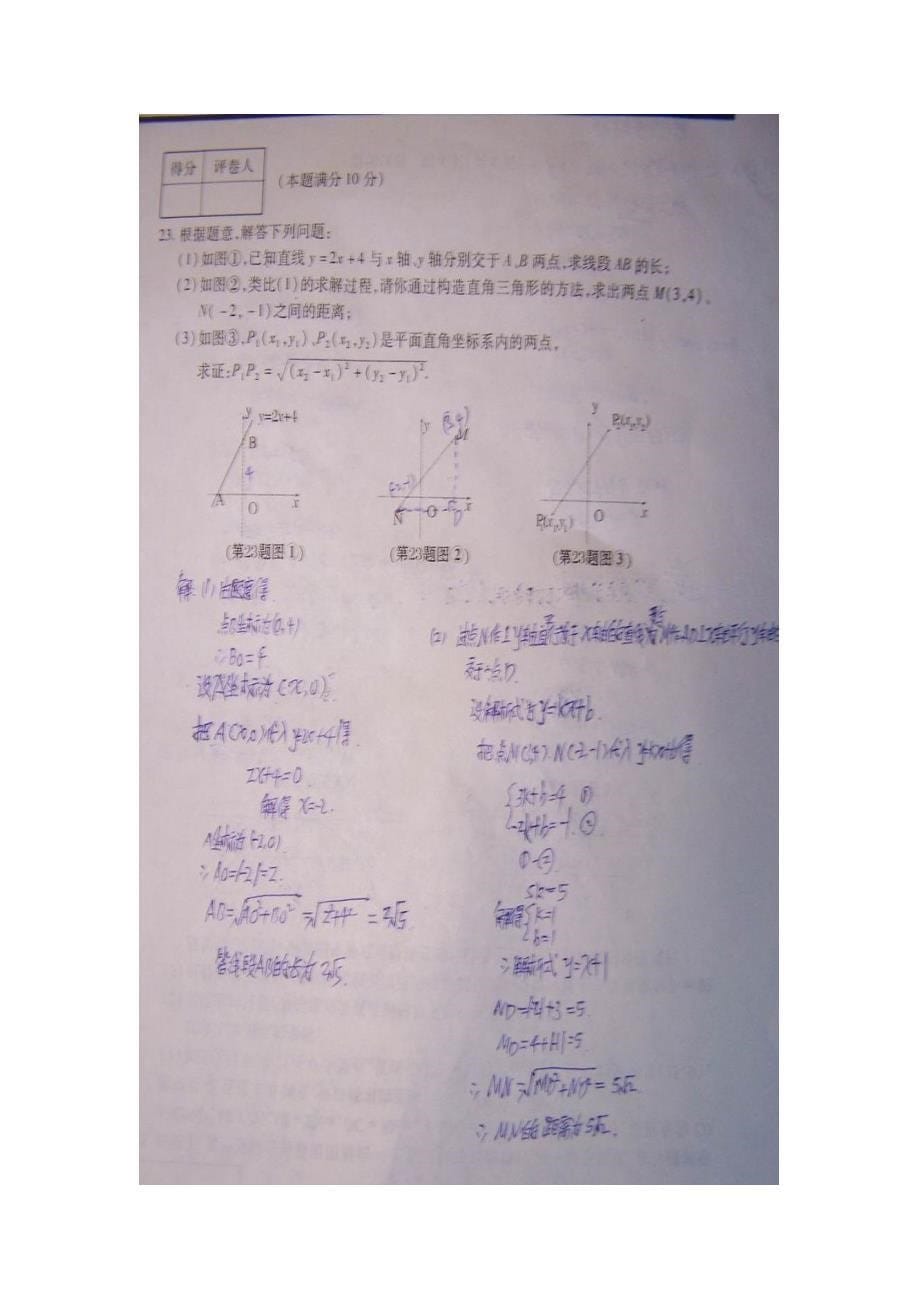 得分 评卷人
(本题满分10分)
23.根据题意,解答下列问题:
(1)如图①,已知直线y=2x+4与x轴、y轴分别交于A、B两点,求线段AB的长;
(2)如图②,类比(1)的求解过程,请你通过构造直角三角形的方法,求出两点M(3,4)、
N(-2,-1)之间的距离;
(3)如图③,P₁(x₁,y₁)、P₂(x₂,y₂)是平面直角坐标系内的两点,
求证:P₁P₂=√(x₂-x₁)²+(y₂-y₁)².
y y=2x+4
B
4
A O x
(3,4)
y M
(-2,-1)
N O D x
y P₂(x₂,y₂)
P₁(x₁,y₁) O x
(第23题图1) (第23题图2) (第23题图3)
解:(1)由题意得
点B坐标为(0,4)
∴BO=4
设A坐标为(x,0)
把A(x,0)代入y=2x+4得
2x+4=0
解得x=-2.
A坐标为(-2,0)
∴AO=|-2|=2.
AB=√AO²+BO²=√2²+4²=2√5.
答线段AB的长为2√5.
(2)过点N作
交于一点D.
设解析式为y=kx+b.
把点M(3,4).N(-2-1)代入y=kx+b得
{3k+b=4 ①
-2k+b=-1.②
①-②
5k=5
解得{k=1
b=1
∴解析式y=x+1
ND=|-2|+3=5.
MD=4+|-1|=5.
∴MN=√MD²+ND²=5√2.
∴MN的距离为5√2.